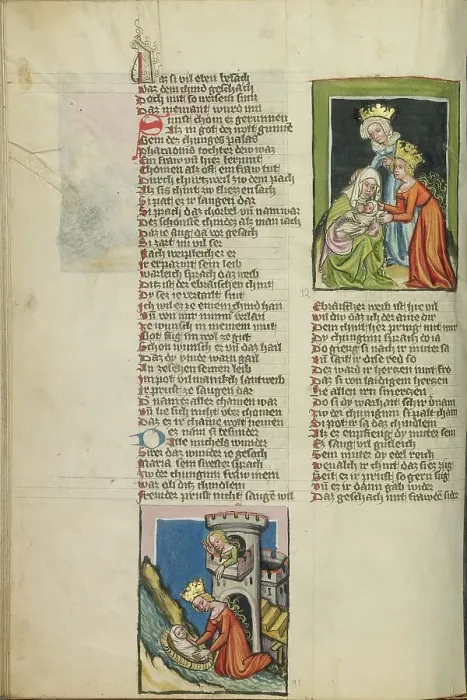 Daz si vil eben besach
Waz dem chind geschach
Doch mit so weisem sinn
Daz niemant wurd inn
Sunst chom ez gerunnen
Als im got dez wolt gunnen
Gein dez chunges palas
Pharaonis tochter dew waz
Ein fraw vnd hiez
Chomen als oft ein fraw tut
Durch churtzweil zv dem pach
Als si ditz zv fliezzen sach
Si pat ez ir langen dar
Si sprach daz chorbel vn nam war
Dez schonste chindez als man iach
Daz ie aug da vor gesach
Si zart im vil ser
Nach
Ir erparmt sein leib
Warleich sprach daz weib
Ditz ist der ebraischen chint
Dy ser ze verlast sint
Ich wil ez ze einem chind han
Vn von mir nimm verlan
Ze wunsch in meinem mut
Got fug im wol ze gut
Schon wunsch ez vn daz hail
Daz dy vinde warn gail
An ze sehen seinen leib
Im pot vil manikch lantweib
Ir prust ze saugen daz
D nam ez aller chainer war
Vn lie sich nicht vber chomen
Daz ez ir chaine wolt nemen
Dez nam si besunder
Alle michels wunder
Aber daz wunder ie gesach
Maria sein swester sprach
Zv der chunginn fraw mein
Waz ob ditz chindlein
Fremder prust nicht saugen wil
Ebraischer weib ist hie vil
Wil dw daz ich der aine dir
Dem chint her pring mit mir
Dy chunginn sprach do ia
Do gieng si nach ir muter sa
Vn sait ir dise red so
Dez ward ir herzen mut fro
Daz si von laidigem herzen
Lie allen irn smerzen
Do si dy warhait schir vnam
Zv der chuniginn si palt cham
Si pot ir sa daz chindlein
Als ez enpfieng dy muter sein
Ez saug vil gutleich
Sein muter dy edel reich
ir chint daz si ez zug
Seit ez ir prust so gern sug
Vn ez ir dann gab wider
Daz geschach mit frawde sider